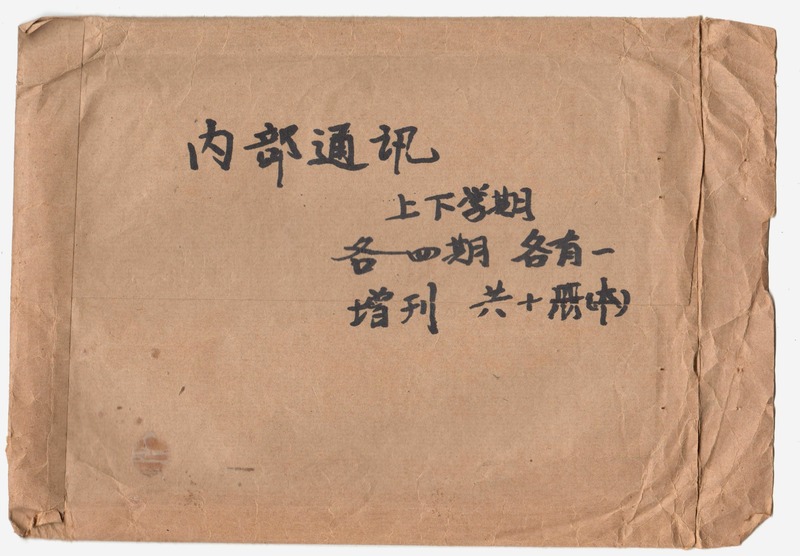 内部通讯
上下学期
各四期 各有一
增刊 共十册(本)